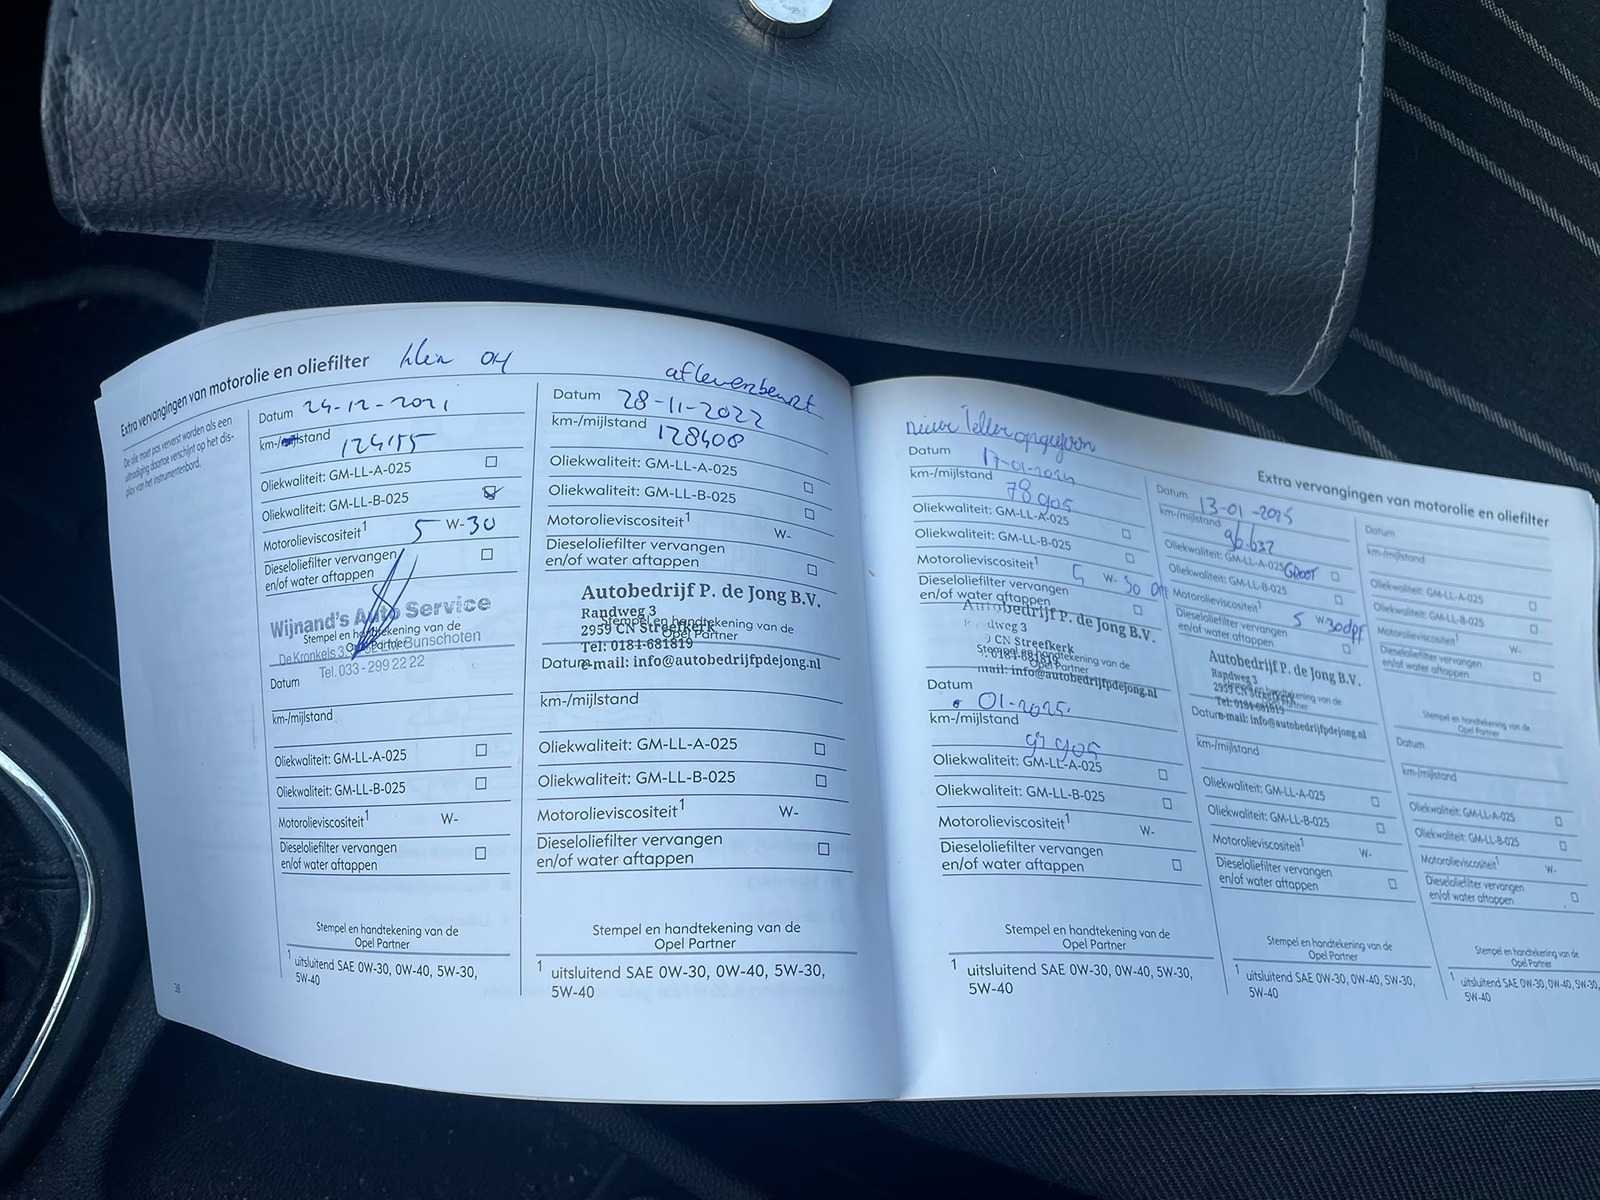 Extra vervangingen van motorolie en oliefilter klein OH
afleverbeurt
De olie moet pas ververst worden als een
uitnodiging daartoe verschijnt op het dis-
play van het instrumentenbord.
Datum 24-12-2021
km-/mijlstand
124155
Oliekwaliteit: GM-LL-A-025
Oliekwaliteit: GM-LL-B-025
Motorolieviscositeit1 5 W-30
Dieseloliefilter vervangen
en/of water aftappen
Wijnand's Auto Service
Stempel en handtekening van de
Opel Partner
De Kronkels 3, Bunschoten
Tel. 033 - 299 22 22
Datum
km-/mijlstand
Oliekwaliteit: GM-LL-A-025
Oliekwaliteit: GM-LL-B-025
Motorolieviscositeit1 W-
Dieseloliefilter vervangen
en/of water aftappen
Stempel en handtekening van de
Opel Partner
1 uitsluitend SAE 0W-30, 0W-40, 5W-30,
5W-40
38
Datum 28-11-2022
km-/mijlstand 128408
Oliekwaliteit: GM-LL-A-025
Oliekwaliteit: GM-LL-B-025
Motorolieviscositeit1 W-
Dieseloliefilter vervangen
en/of water aftappen
Autobedrijf P. de Jong B.V.
Randweg 3
2959 CN Streefkerk
Stempel en handtekening van de
Opel Partner
Tel: 0184-681819
e-mail: info@autobedrijfpdejong.nl
Datum
km-/mijlstand
Oliekwaliteit: GM-LL-A-025
Oliekwaliteit: GM-LL-B-025
Motorolieviscositeit1 W-
Dieseloliefilter vervangen
en/of water aftappen
Stempel en handtekening van de
Opel Partner
1 uitsluitend SAE 0W-30, 0W-40, 5W-30,
5W-40
Extra vervangingen van motorolie en oliefilter
nieuwe Teller opgegeven
Datum 17-01-2024
km-/mijlstand 78905
Oliekwaliteit: GM-LL-A-025
Oliekwaliteit: GM-LL-B-025
Motorolieviscositeit1 5 W-30
Dieseloliefilter vervangen
en/of water aftappen
Autobedrijf P. de Jong B.V.
weg 3
CN Streefkerk
0184-681819
Stempel en handtekening van de
Opel Partner
mail: info@autobedrijfpdejong.nl
Datum
01-2025
km-/mijlstand
Oliekwaliteit: GM-LL-A-025
Oliekwaliteit: GM-LL-B-025
Motorolieviscositeit1 W-
Dieseloliefilter vervangen
en/of water aftappen
Stempel en handtekening van de
Opel Partner
1 uitsluitend SAE 0W-30, 0W-40, 5W-30,
5W-40
Datum 13-01-2025
km-/mijlstand 96.632
Oliekwaliteit: GM-LL-A-025 GROOT
Oliekwaliteit: GM-LL-B-025
Motorolieviscositeit1 5 W-30 dpf
Dieseloliefilter vervangen
en/of water aftappen
Autobedrijf P. de Jong B.V.
Randweg 3
2959 CN Streefkerk
Tel: 0184-681819
e-mail: info@autobedrijfpdejong.nl
Datum
km-/mijlstand
Oliekwaliteit: GM-LL-A-025
Oliekwaliteit: GM-LL-B-025
Motorolieviscositeit1 W-
Dieseloliefilter vervangen
en/of water aftappen
Stempel en handtekening van de
Opel Partner
1 uitsluitend SAE 0W-30, 0W-40, 5W-30,
5W-40
Datum
km-/mijlstand
Oliekwaliteit: GM-LL-A-025
Oliekwaliteit: GM-LL-B-025
Motorolieviscositeit1 W-
Dieseloliefilter vervangen
en/of water aftappen
Stempel en handtekening van de
Opel Partner
Datum
km-/mijlstand
Oliekwaliteit: GM-LL-A-025
Oliekwaliteit: GM-LL-B-025
Motorolieviscositeit1 W-
Dieseloliefilter vervangen
en/of water aftappen
Stempel en handtekening van de
Opel Partner
1 uitsluitend SAE 0W-30, 0W-40, 5W-30,
5W-40